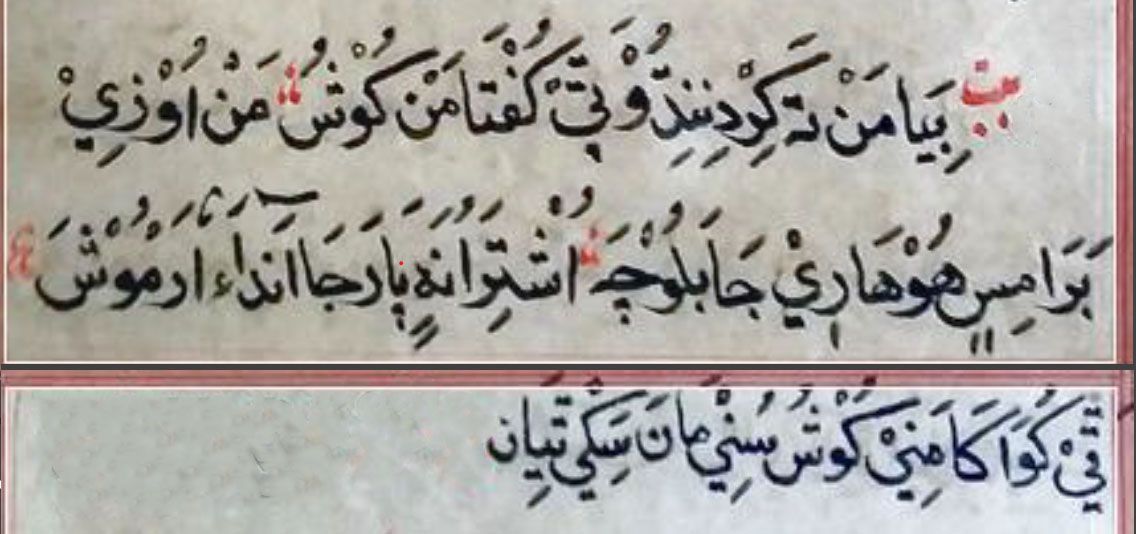 بِيَا مَنْ تَه كِرْدِنِنِدّ وْ بِيّْ كُفْتَا مَنْ كُوْشُ مَنْ اُوْزِيْ
بَرَا مِسٍ هُوْهَارِيْ جَا بَلُوْچَه اُشْتِرَانَهٍ پَارَ جَا آنداءَ اَرْمُوْشَ
كُوَا كَا مَنِيْ كُوْشُ سُنِيْ مَانَ سِكِّي تِيَانِ